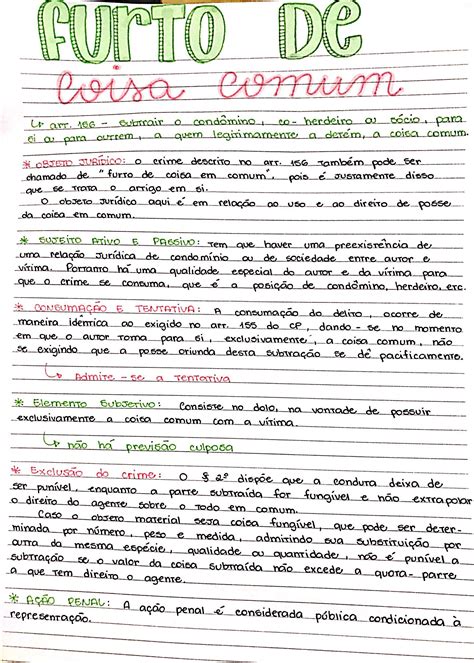 FURTO DE
coisa comum
↳ art. 156 - subtrair o condômino, co-herdeiro ou sócio, para
si ou para outrem, a quem legitimamente a detém, a coisa comum.
* OBJETO JURÍDICO: o crime descrito no art. 156 também pode ser
chamado de "furto de coisa em comum", pois é justamente disso
que se trata o artigo em si.
O objeto jurídico aqui é em relação ao uso e ao direito de posse
da coisa em comum.
* SUJEITO ATIVO E PASSIVO: tem que haver uma preexistência de
uma relação jurídica de condomínio ou de sociedade entre autor e
vítima. Portanto há uma qualidade especial do autor e da vítima para
que o crime se consuma, que é a posição de condômino, herdeiro, etc.
* CONSUMAÇÃO E TENTATIVA: A consumação do delito, ocorre de
maneira idêntica ao exigido no art. 155 do CP, dando-se no momento
em que o autor toma para si, exclusivamente, a coisa comum, não
se exigindo que a posse oriunda desta subtração se dê pacificamente.
↳ Admite-se a tentativa
* Elemento Subjetivo: Consiste no dolo, na vontade de possuir
exclusivamente a coisa comum com a vítima.
↳ não há previsão culposa
* Exclusão do crime: O § 2º dispõe que a conduta deixa de
ser punível, enquanto a parte subtraída for fungível e não extrapolar
o direito do agente sobre o todo em comum.
Caso o objeto material seja coisa fungível, que pode ser deter-
minada por número, peso e medida, admitindo sua substituição por
outra da mesma espécie, qualidade ou quantidade, não é punível a
subtração se o valor da coisa subtraída não excede a quota-parte
a que tem direito o agente.
* AÇÃO PENAL: A ação penal é considerada pública condicionada à
representação.